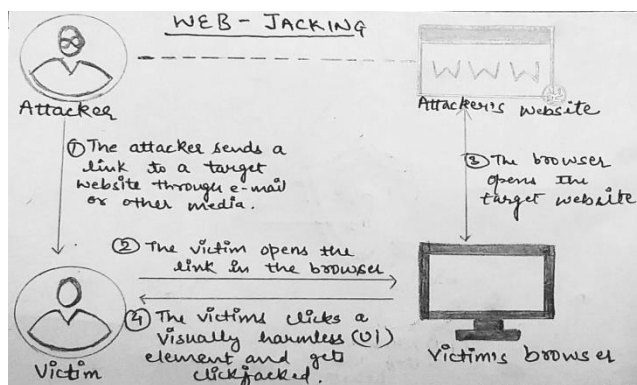 WEB-JACKING
Attacker
WWW
Attacker's website
① The attacker sends a
link to a target
website through e-mail
or other media.
③ The browser
opens the
target website
② The victim opens the
link in the browser
④ The victims clicks a
visually harmless (UI)
element and gets
clickjacked.
Victim
Victim's browser